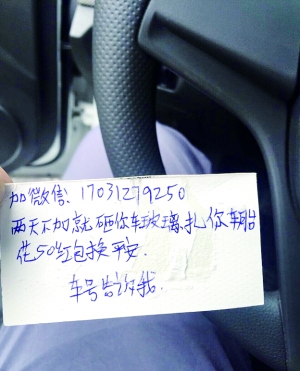 加微信: 17031279250
两天不加就砸你车玻璃,扎你车胎
花50红包换平安.
车号告诉我.